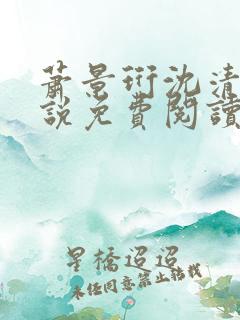 萧景珩沈清
說免費閱讀
星橋迢迢
未經同意禁止轉載